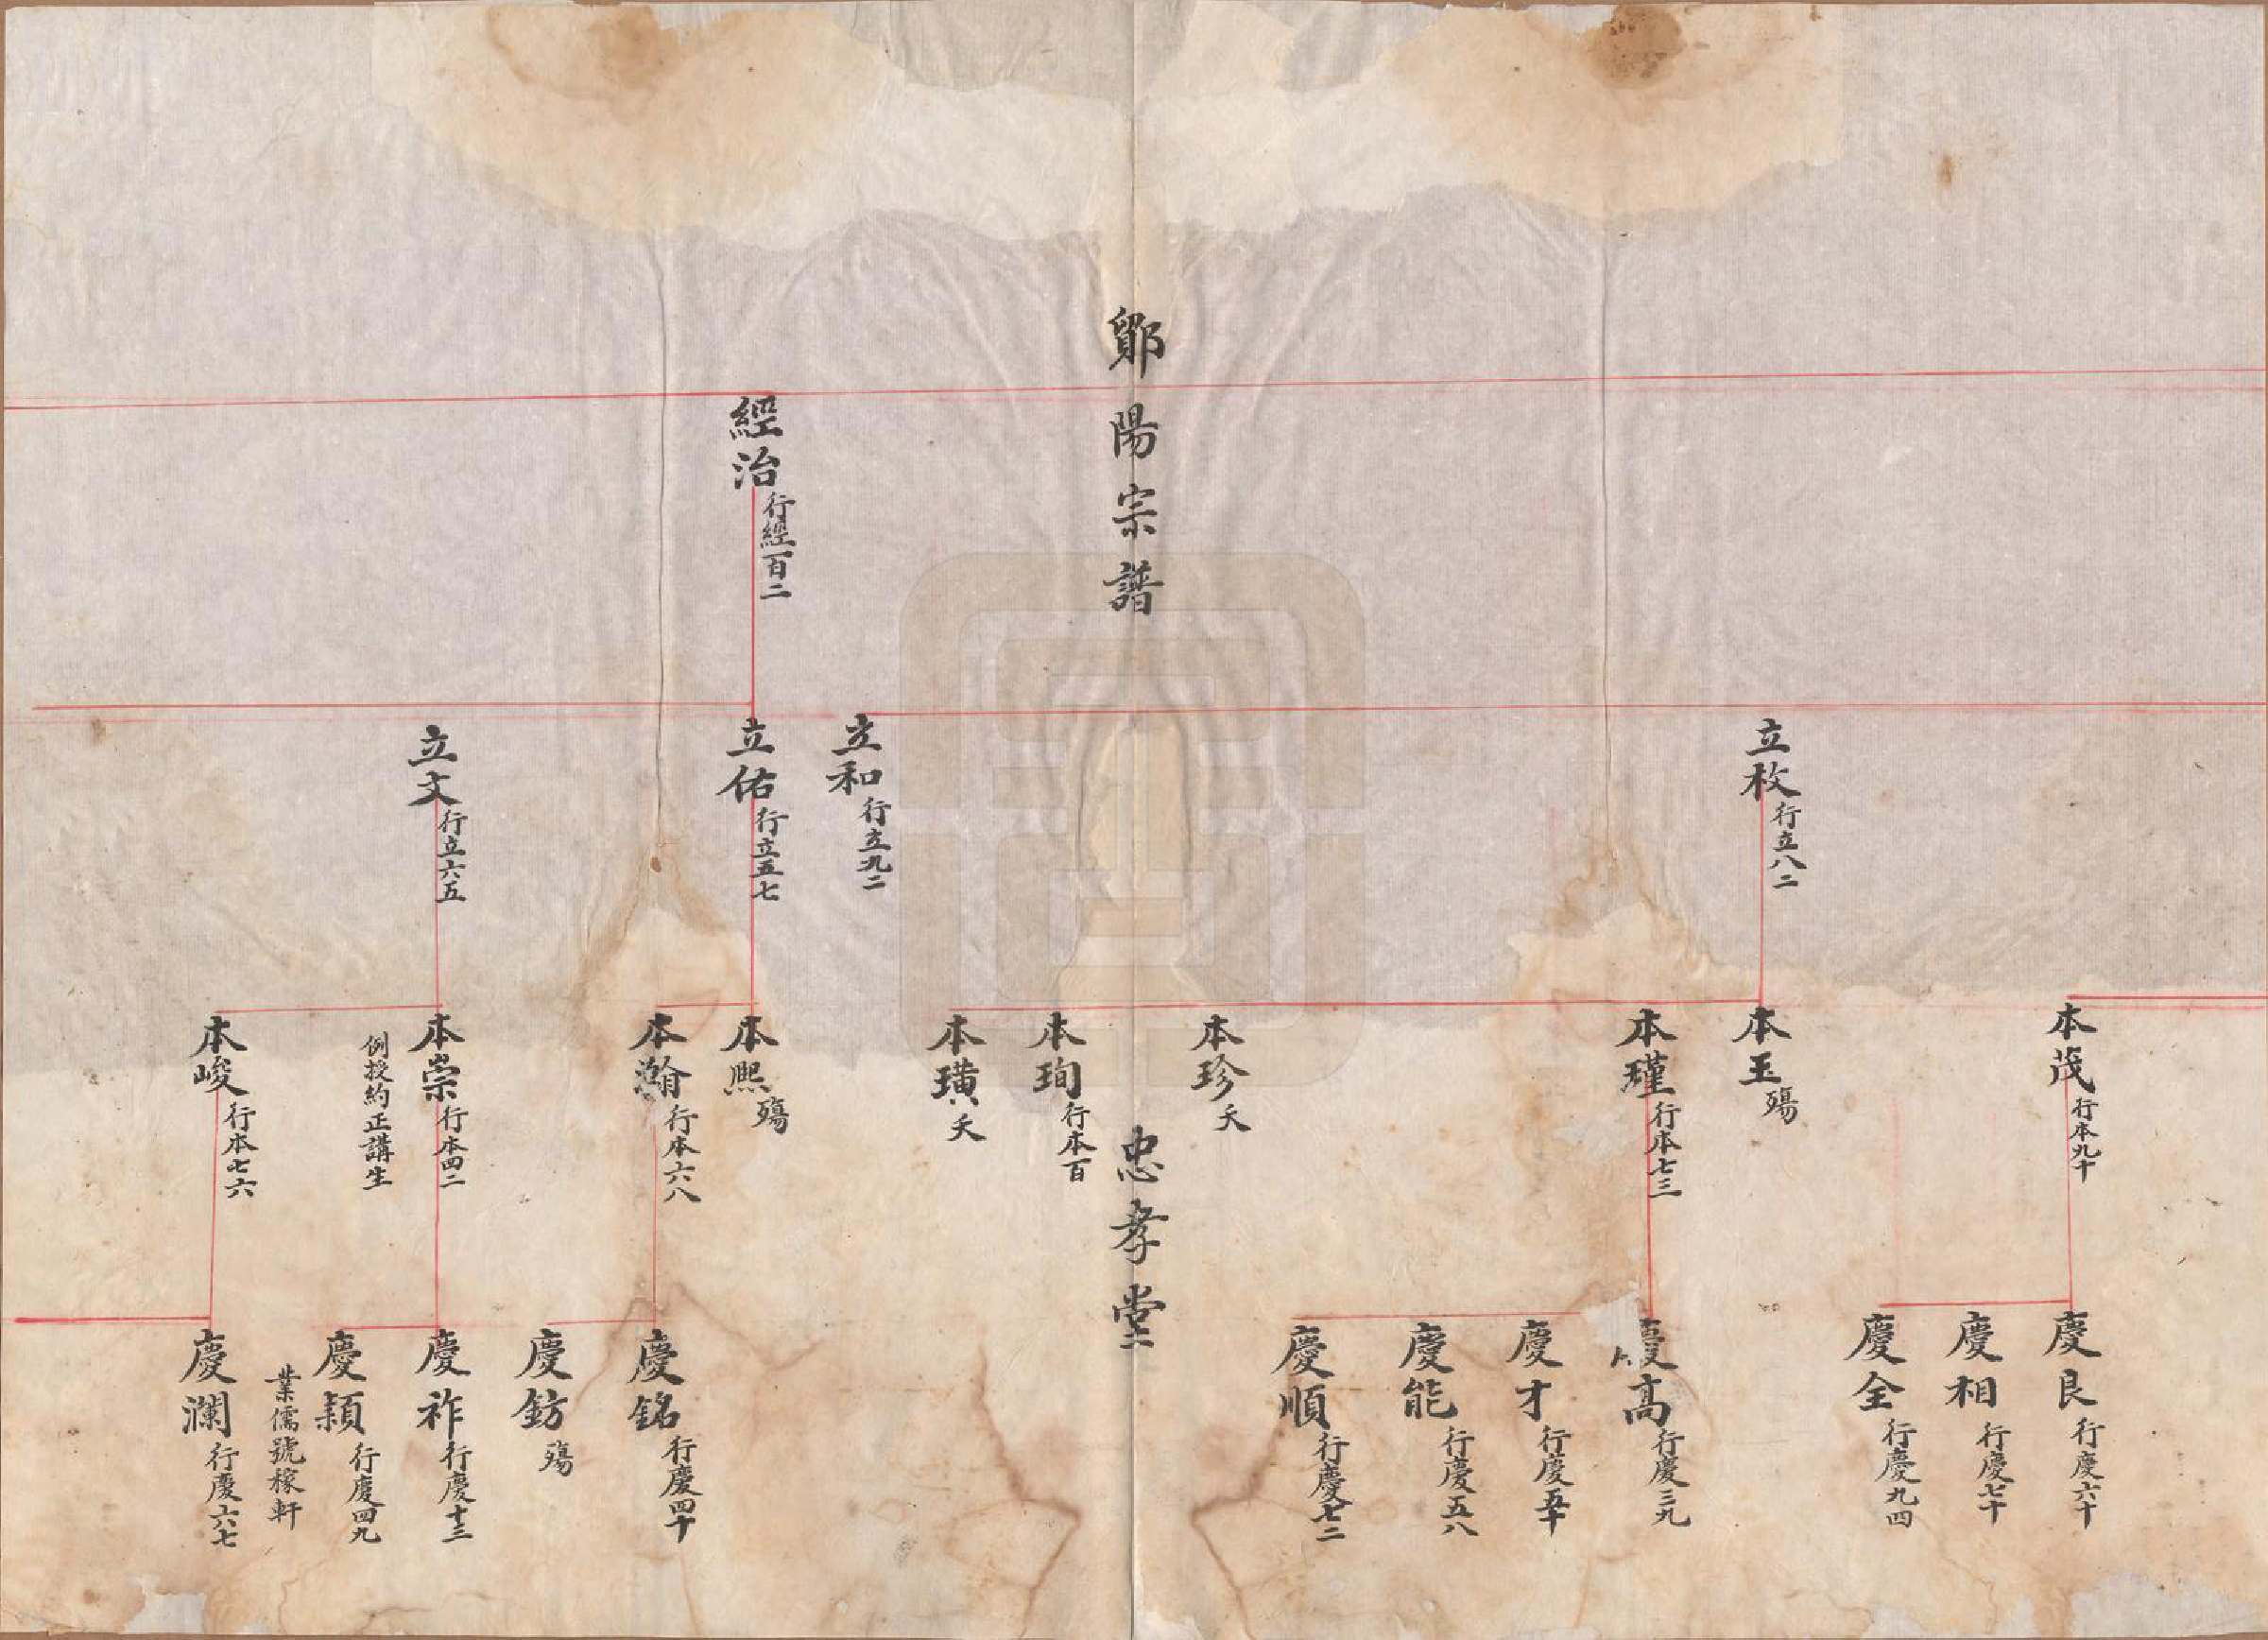 鄮陽宗譜
忠孝堂
經治 行經百二
立枚 行立八二
立和 行立九二
立佑 行立五七
立文 行立六五
本茂 行本九十
本玉 殤
本瑾 行本七三
本珍 夭
本珣 行本百
本璜 夭
本熙 殤
本瀚 行本六八
本崇 行本四二
例授約正講生
本峻 行本七六
慶良 行慶六十
慶相 行慶七十
慶全 行慶九四
慶高 行慶三九
慶才 行慶五十
慶能 行慶五八
慶順 行慶七二
慶銘 行慶四十
慶鈁 殤
慶祚 行慶十三
慶穎 行慶四九
業儒號稼軒
慶瀾 行慶六七